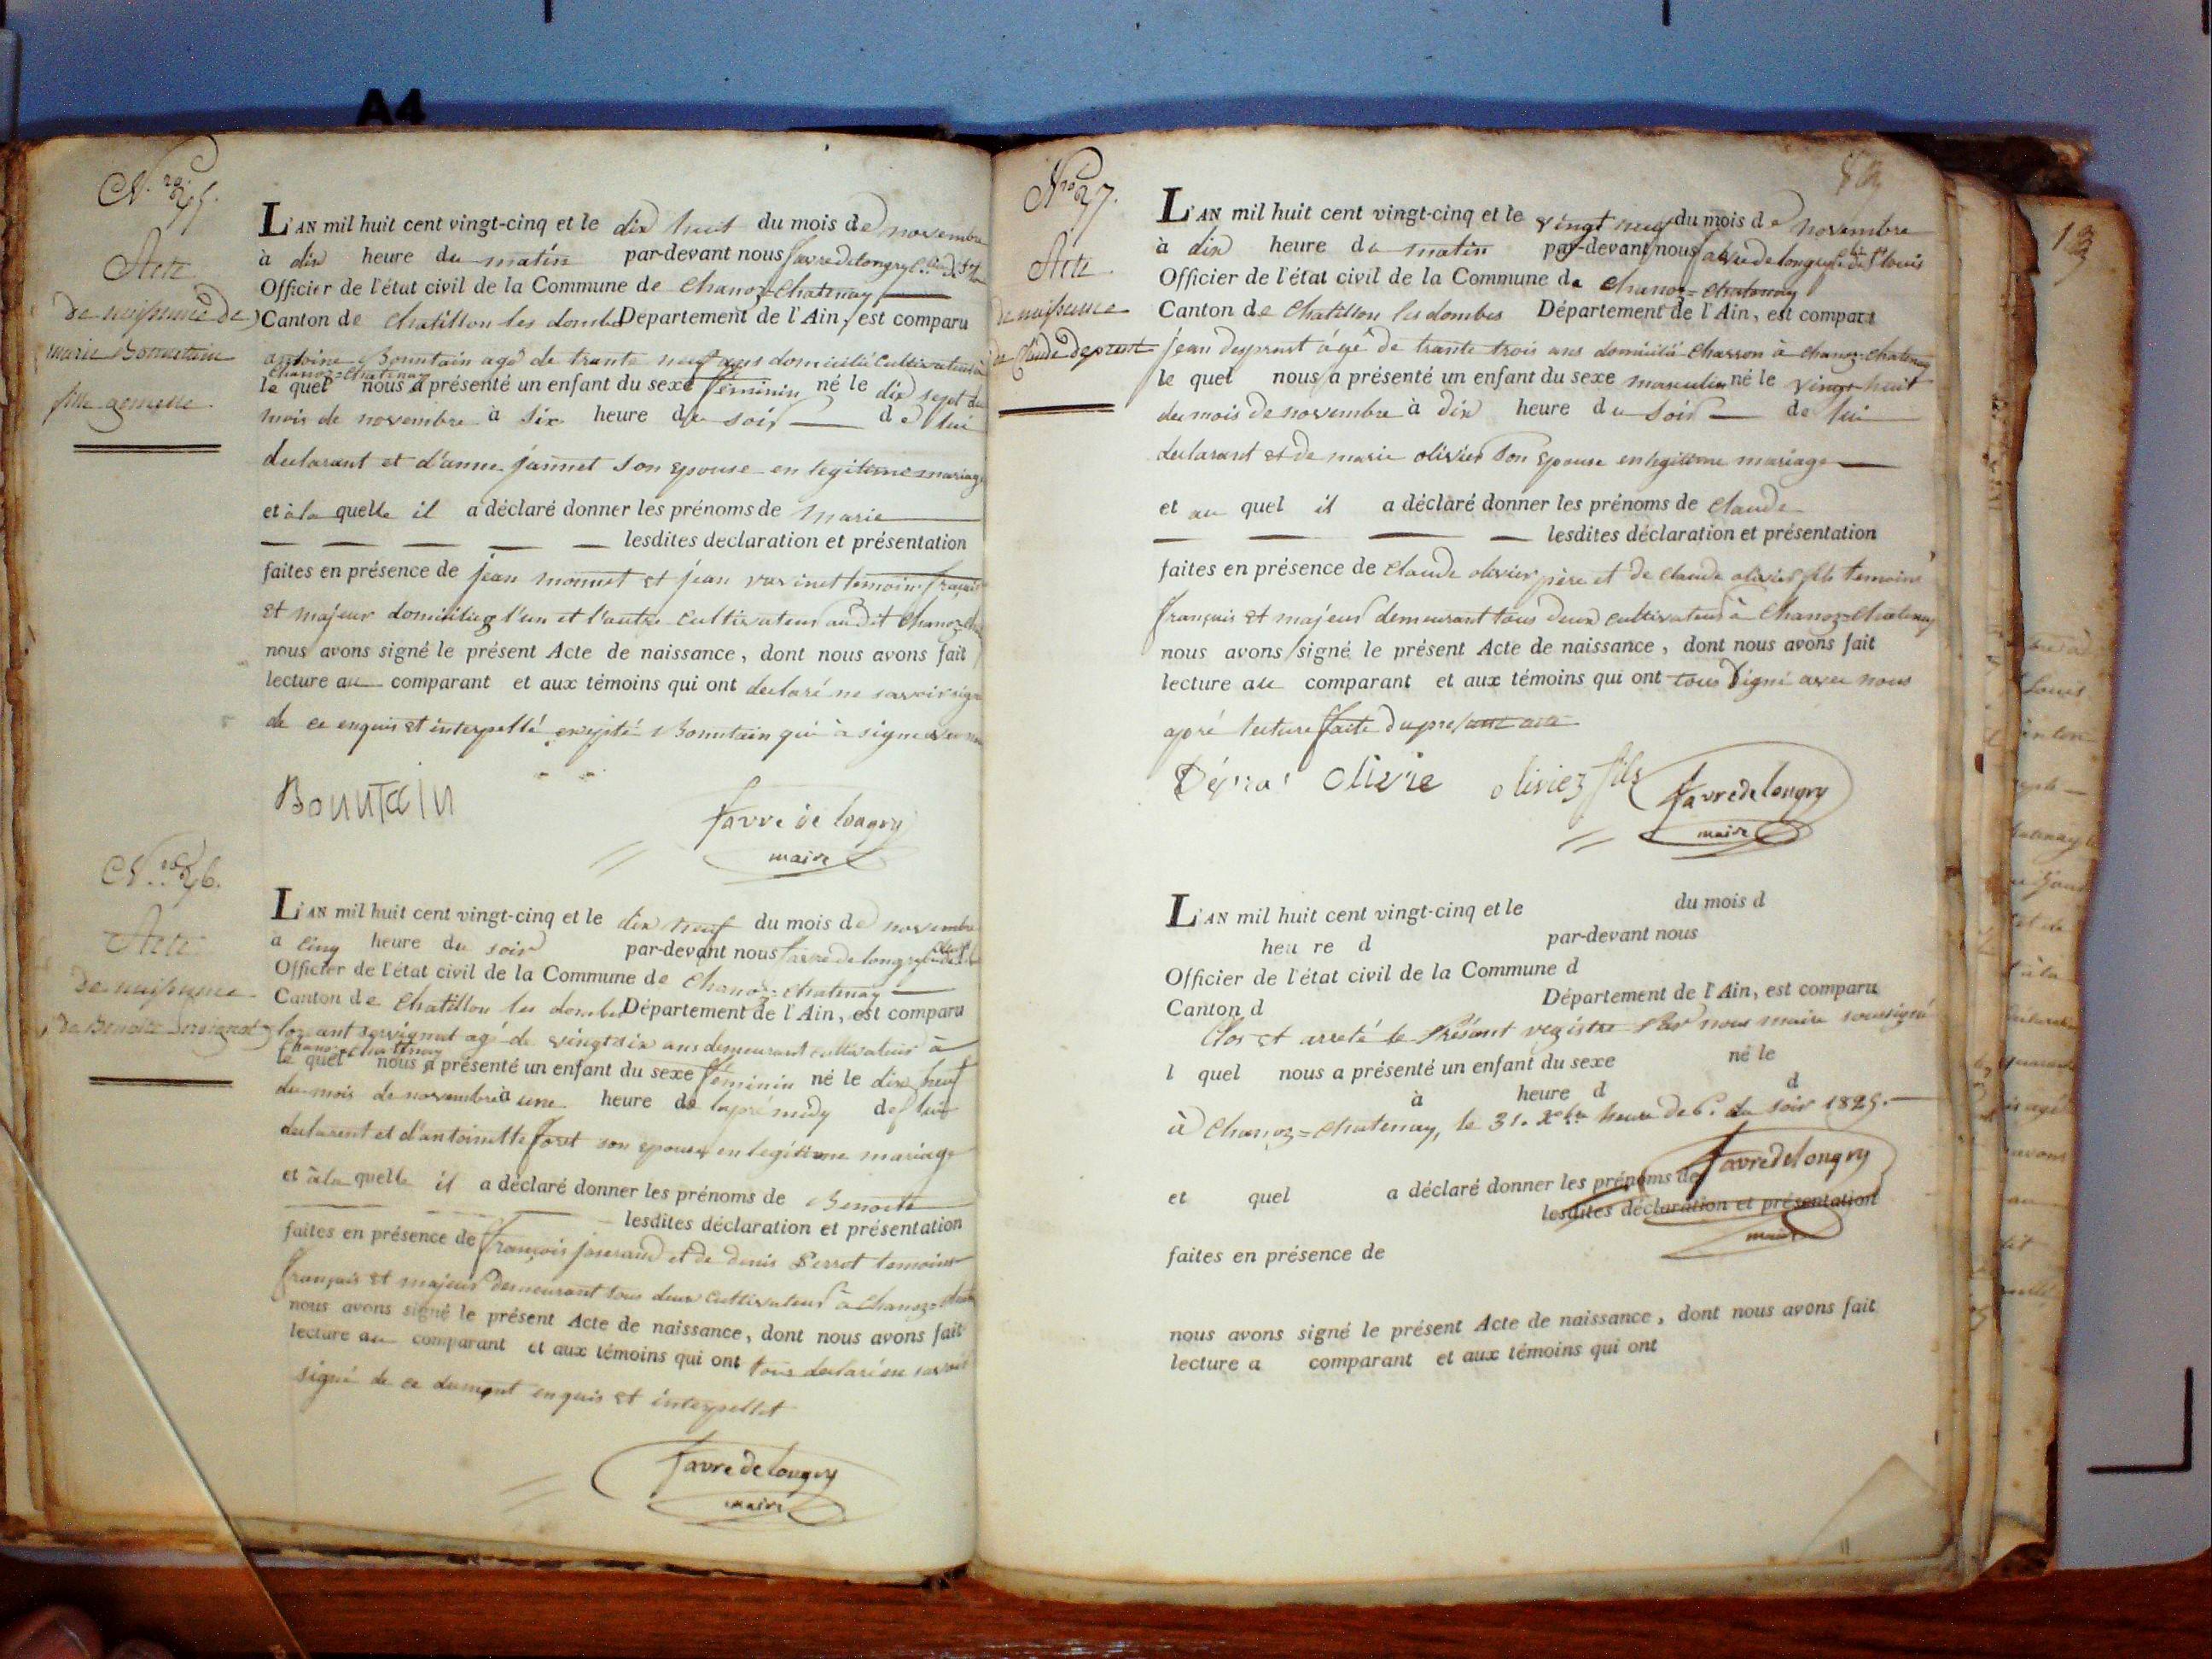 A4
N.ro 25.
Acte
de naissance de
marie Bonnetain
fille gemelle
L'AN mil huit cent vingt-cinq et le dix huit du mois de novembre
à dix heure du matin par-devant nous favre de longry
Officier de l'état civil de la Commune de Chanoz=Chatenay
Canton de Chatillon les dombes Département de l'Ain, est comparu
antoine Bonntain agé de trante neuf ans domicilié cultivateur à
Chanoz=Chatenay
le quel nous a présenté un enfant du sexe féminin né le dix sept du
mois de novembre à six heure du soir de lui
declarant et d'anne jannet son epouse en legitime mariage
et à la quelle il a déclaré donner les prénoms de marie
lesdites déclaration et présentation
faites en présence de jean monnet et jean varinet temoins français
et majeur domicilié l'un et l'autre cultivateur audit Chanoz
nous avons signé le présent Acte de naissance, dont nous avons fait
lecture au comparant et aux témoins qui ont declaré ne savoir signe
de ce enquis et interpellé excepté Bonntain qui à signé
BonnTain
favre de longry
maire
N.ro 26.
Acte
de naissance
de Benoite servignat
L'AN mil huit cent vingt-cinq et le dix neuf du mois de novembre
à cinq heure du soir par-devant nous favre de longry
Officier de l'état civil de la Commune de Chanoz=Chatenay
Canton de Chatillon les dombes Département de l'Ain, est comparu
lorant servignat agé de vingt six ans demeurant cultivateur à
Chanoz=Chattenay
le quel nous a présenté un enfant du sexe féminin né le dix neuf
du mois de novembre à une heure de laprè midy de lui
declarent et d'antoinette foret son epouse en legitime mariage
et à la quelle il a déclaré donner les prénoms de Benoite
lesdites déclaration et présentation
faites en présence de françois et de denis Perret temoins
français et majeur demeurant tous deux cultivateur à Chanoz
nous avons signé le présent Acte de naissance, dont nous avons fait
lecture au comparant et aux témoins qui ont tous declaré ne savoir
signé de ce dument enquis et interpellet
favre de longry
maire
Nro 27.
Acte
de naissance
de Claude deprast
L'AN mil huit cent vingt-cinq et le vingt neuf du mois de novembre
à dix heure du matin par-devant nous favre de longry
Officier de l'état civil de la Commune de Chanoz=Chatenay
Canton de Chatillon les dombes Département de l'Ain, est comparu
jean desprast âgé de trante trois ans domicilié Charron à Chanoz=Chatenay
le quel nous a présenté un enfant du sexe masculin né le vingt huit
du mois de novembre à dix heure du soir de lui
declarant et de marie olivier son epouse en legitime mariage
et au quel il a déclaré donner les prénoms de Claude
lesdites déclaration et présentation
faites en présence de Claude olivier père et de Claude olivier fils temoins
français et majeur demeurant tous deux cultivateur à Chanoz=Chatenay
nous avons signé le présent Acte de naissance, dont nous avons fait
lecture au comparant et aux témoins qui ont tous signé avec nous
apré lecture faite du presant acte
olivie oliviez fils favre de longry
maire
L'AN mil huit cent vingt-cinq et le du mois d
heure d par-devant nous
Officier de l'état civil de la Commune d
Canton d Département de l'Ain, est comparu
Clos et arreté le Présent registre Par nous maire soussigné
l quel nous a présenté un enfant du sexe né le
à heure d d
à Chanoz=Chatenay, le 31. Xbre heure de 6. du soir 1825.
favre de longry
et quel a déclaré donner les prénoms de
lesdites déclaration et présentation
maire
faites en présence de
nous avons signé le présent Acte de naissance, dont nous avons fait
lecture a comparant et aux témoins qui ont